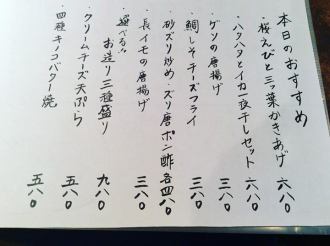 本日のおすすめ
・桜えびと三ッ葉かきあげ 六八〇
・ハタハタとイカ一夜干しセット 六八〇
・ゲソの唐揚げ 三八〇
・鯛しそチーズフライ 三八〇
・砂ズリ炒め・ズリ唐ポン酢 各四八〇
・長イモの唐揚げ 三八〇
・選べる!! お造り三種盛り 九八〇
・クリームチーズ天ぷら 五八〇
・四種キノコバター焼 五八〇